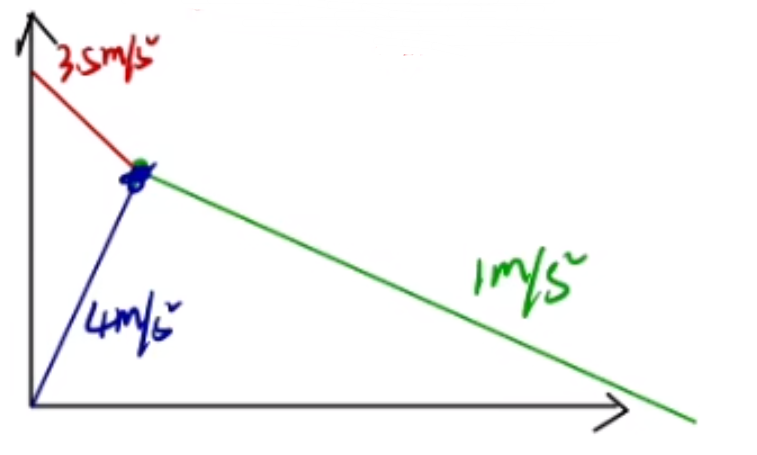 3.5m/s²
4m/s²
1m/s²